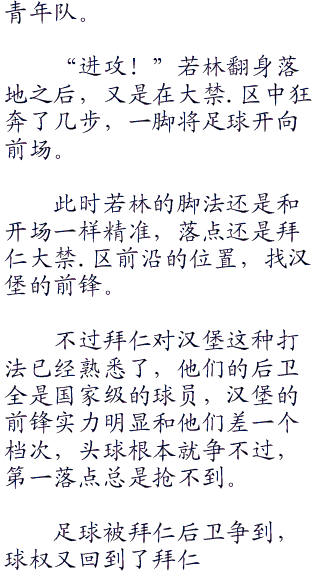 青年队。
“进攻！”若林翻身落
地之后，又是在大禁.区中狂
奔了几步，一脚将足球开向
前场。
此时若林的脚法还是和
开场一样精准，落点还是拜
仁大禁.区前沿的位置，找汉
堡的前锋。
不过拜仁对汉堡这种打
法已经熟悉了，他们的后卫
全是国家级的球员，汉堡的
前锋实力明显和他们差一个
档次，头球根本就争不过，
第一落点总是抢不到。
足球被拜仁后卫争到，
球权又回到了拜仁